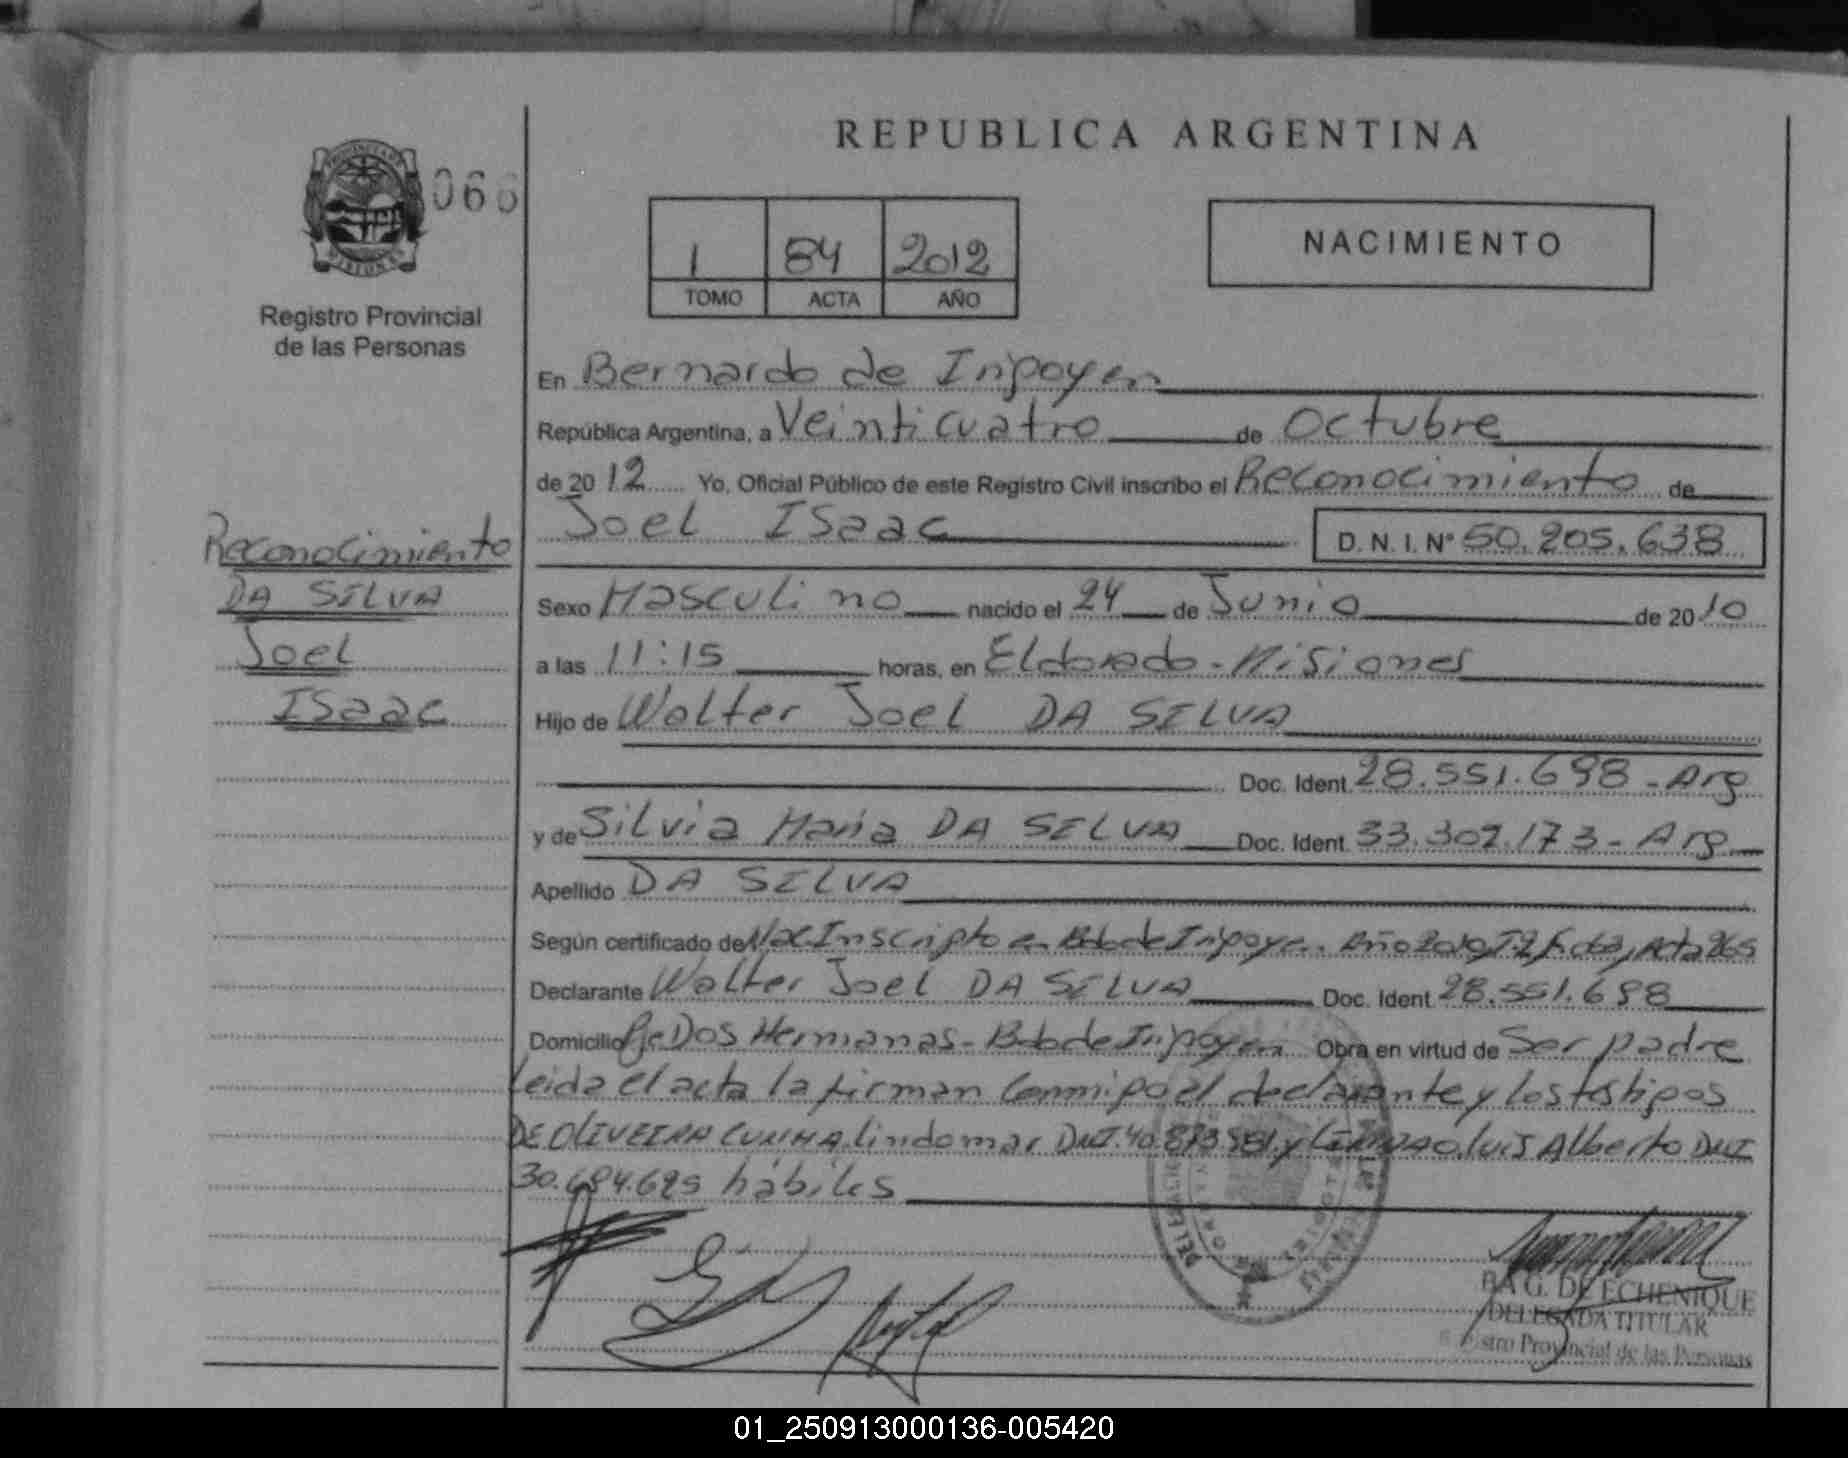 REPUBLICA ARGENTINA
PROVINCIA DE
MISIONES
066
Registro Provincial
de las Personas
1 84 2012
TOMO ACTA AÑO
NACIMIENTO
En Bernardo de Irigoyen
República Argentina, a Veinticuatro de Octubre
de 2012 Yo, Oficial Público de este Registro Civil inscribo el Reconocimiento de
Joel Isaac D. N. I. N° 50.205.638
Reconocimiento
DA SILVA
Joel
Isaac
Sexo Masculino nacido el 24 de Junio de 2010
a las 11:15 horas, en Eldorado - Misiones
Hijo de Walter Joel DA SILVA
Doc. Ident. 28.551.698 - Arg
y de Silvia Maria DA SILVA Doc. Ident. 33.302.173 - Arg
Apellido DA SILVA
Según certificado de Nac. Inscripto en Bdo de Irigoyen. Año 2010, T.2, F. 063, Acta 265
Declarante Walter Joel DA SILVA Doc. Ident. 28.551.698
Domicilio Dos Hermanas - Bdo de Irigoyen Obra en virtud de Ser padre
Leida el acta la firman Conmigo el declarante y los testigos
DE OLIVEIRA CUNHA, lindomar D.N.I. y Luis Alberto D.N.I
30.684.695 hábiles
G. DE ECHENIQUE
DELEGADA TITULAR
Registro Provincial de las Personas
01_250913000136-005420